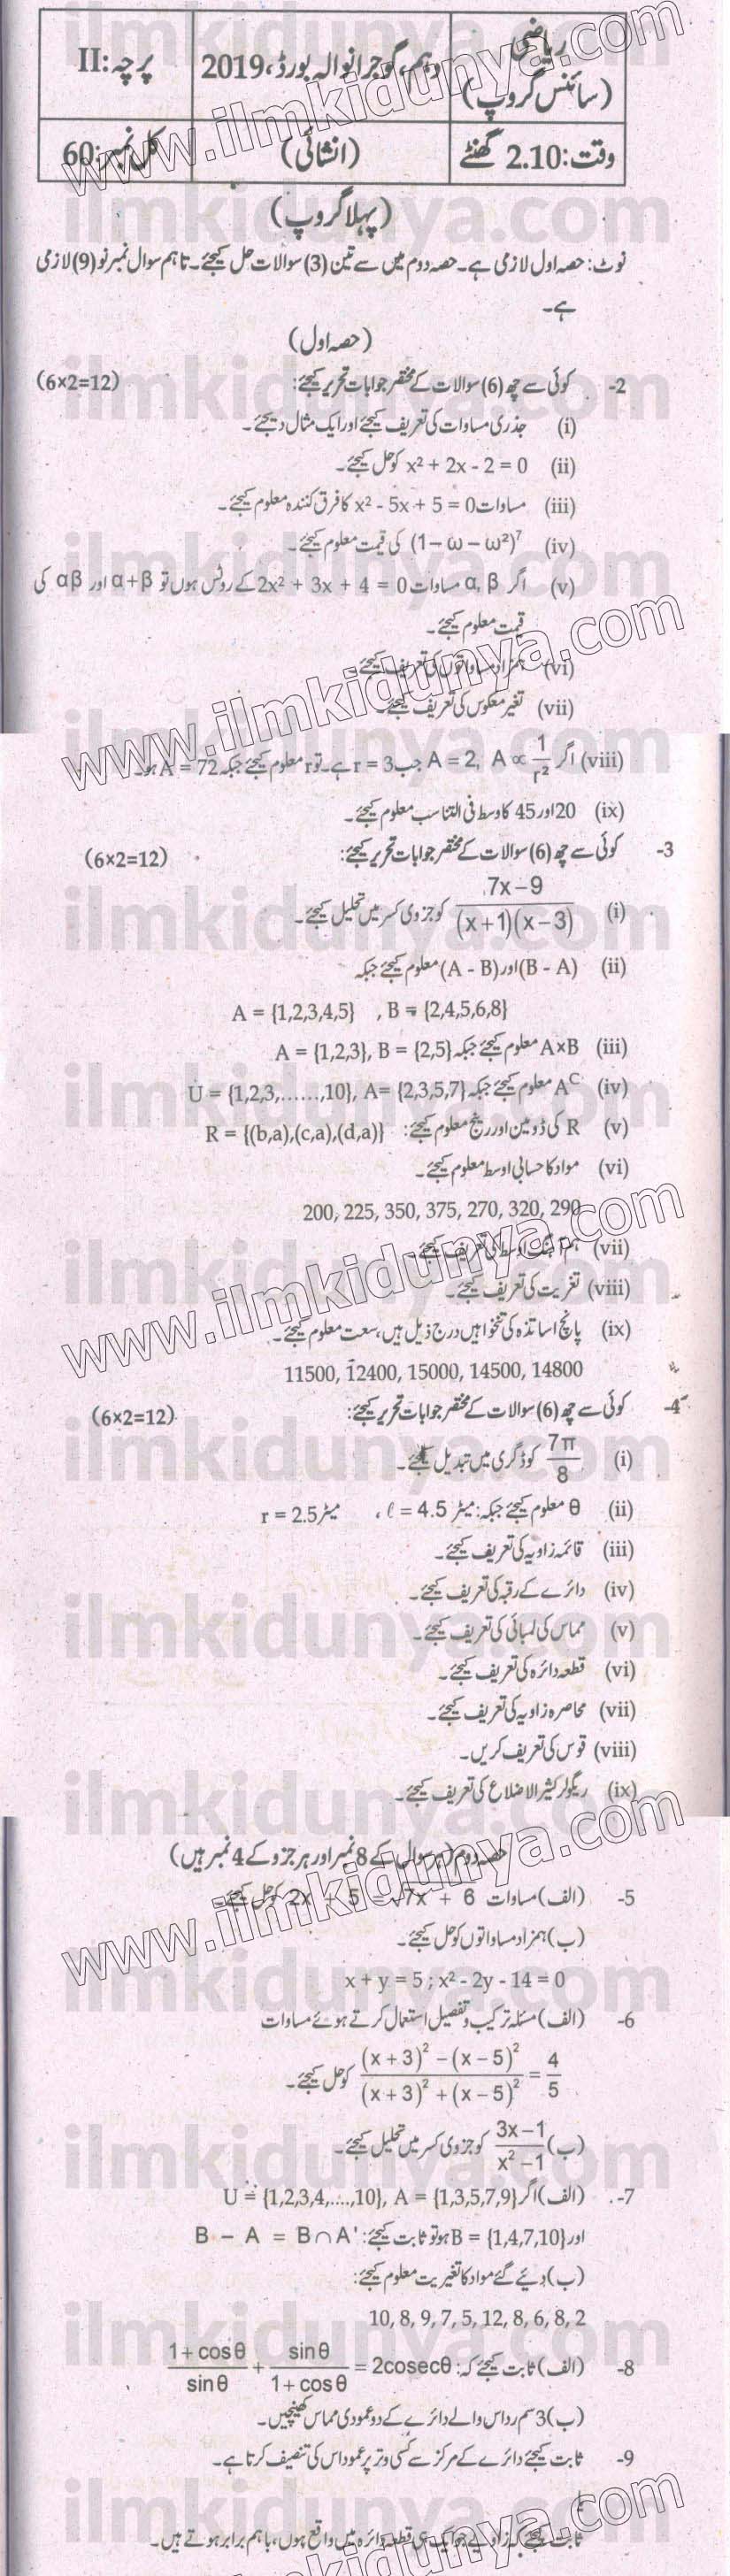 ریاضی
(سائنس گروپ)
دہم، گوجرانوالہ بورڈ، 2019
پرچہ: II
وقت: 2.10 گھنٹے
(انشائی)
کل نمبر: 60
(پہلا گروپ)
نوٹ: حصہ اول لازمی ہے۔ حصہ دوم میں سے تین (3) سوالات حل کیجئے۔ تاہم سوال نمبر نو (9) لازمی
ہے۔
(حصہ اول)
2- کوئی سے چھ (6) سوالات کے مختصر جوابات تحریر کیجئے: (6×2=12)
(i) جذری مساوات کی تعریف کیجئے اور ایک مثال دیجئے۔
(ii) x² + 2x - 2 = 0 کو حل کیجئے۔
(iii) مساوات x² - 5x + 5 = 0 کا فرق کنندہ معلوم کیجئے۔
(iv) (1 – ω – ω²)⁷ کی قیمت معلوم کیجئے۔
(v) اگر α, β مساوات 2x² + 3x + 4 = 0 کے روٹس ہوں تو α+β اور αβ کی
قیمت معلوم کیجئے۔
(vi) ہمزاد مساواتوں کی تعریف کیجئے۔
(vii) تغیر معکوس کی تعریف کیجئے۔
(viii) اگر A ∝ 1/r², A = 2 جب r = 3 ہے۔ تو r معلوم کیجئے جبکہ A = 72 ہو۔
(ix) 20 اور 45 کا وسط فی التناسب معلوم کیجئے۔
3- کوئی سے چھ (6) سوالات کے مختصر جوابات تحریر کیجئے: (6×2=12)
(i) 7x–9/(x+1)(x–3) کو جزوی کسر میں تحلیل کیجئے۔
(ii) (A - B) اور (B - A) معلوم کیجئے جبکہ
A = {1,2,3,4,5} , B = {2,4,5,6,8}
(iii) A×B معلوم کیجئے جبکہ A = {1,2,3}, B = {2,5}
(iv) Aᶜ معلوم کیجئے جبکہ U = {1,2,3,......,10}, A= {2,3,5,7}
(v) R کی ڈومین اور رینج معلوم کیجئے: R = {(b,a),(c,a),(d,a)}
(vi) مواد کا حسابی اوسط معلوم کیجئے۔
200, 225, 350, 375, 270, 320, 290
(vii) ہم آہنگ اوسط کی تعریف کیجئے۔
(viii) تغیریت کی تعریف کیجئے۔
(ix) پانچ اساتذہ کی تنخواہیں درج ذیل ہیں، سعت معلوم کیجئے۔
11500, 12400, 15000, 14500, 14800
4- کوئی سے چھ (6) سوالات کے مختصر جوابات تحریر کیجئے: (6×2=12)
(i) 7π/8 کو ڈگری میں تبدیل کیجئے۔
(ii) θ معلوم کیجئے جبکہ: ℓ = 4.5 میٹر ، r = 2.5 میٹر
(iii) قائمہ زاویہ کی تعریف کیجئے۔
(iv) دائرے کے رقبہ کی تعریف کیجئے۔
(v) مماس کی لمبائی کی تعریف کیجئے۔
(vi) قطعہ دائرہ کی تعریف کیجئے۔
(vii) محاصرہ زاویہ کی تعریف کیجئے۔
(viii) قوس کی تعریف کریں۔
(ix) ریگولر کثیر الاضلاع کی تعریف کیجئے۔
حصہ دوم (ہر سوال کے 8 نمبر اور ہر جزو کے 4 نمبر ہیں)
5- (الف) مساوات 2x + 5 = √7x + 6 کو حل کیجئے۔
(ب) ہمزاد مساواتوں کو حل کیجئے۔
x + y = 5 ; x² - 2y - 14 = 0
6- (الف) مسئلہ ترکیب و تفصیل استعمال کرتے ہوئے مساوات
(x+3)² – (x–5)²/(x+3)² + (x–5)² = 4/5 کو حل کیجئے۔
(ب) 3x–1/x²–1 کو جزوی کسر میں تحلیل کیجئے۔
7- (الف) اگر U = {1,2,3,4,....,10}, A = {1,3,5,7,9}
اور B = {1,4,7,10} ہو تو ثابت کیجئے: B – A = B∩A'
(ب) دیئے گئے مواد کا تغیریت معلوم کیجئے:
10, 8, 9, 7, 5, 12, 8, 6, 8, 2
8- (الف) ثابت کیجئے کہ: 1+cosθ/sinθ + sinθ/1+cosθ = 2cosecθ
(ب) 3 سم رداس والے دائرے کے دو عمودی مماس کھینچیں۔
9- ثابت کیجئے دائرے کے مرکز سے کسی وتر پر عمود اس کی تنصیف کرتا ہے۔
یا
ثابت کیجئے کہ زاویے جو ایک ہی قطعہ دائرہ میں واقع ہوں، باہم برابر ہوتے ہیں۔
www.ilmkidunya.com
www.ilmkidunya.com
www.ilmkidunya.com
www.ilmkidunya.com